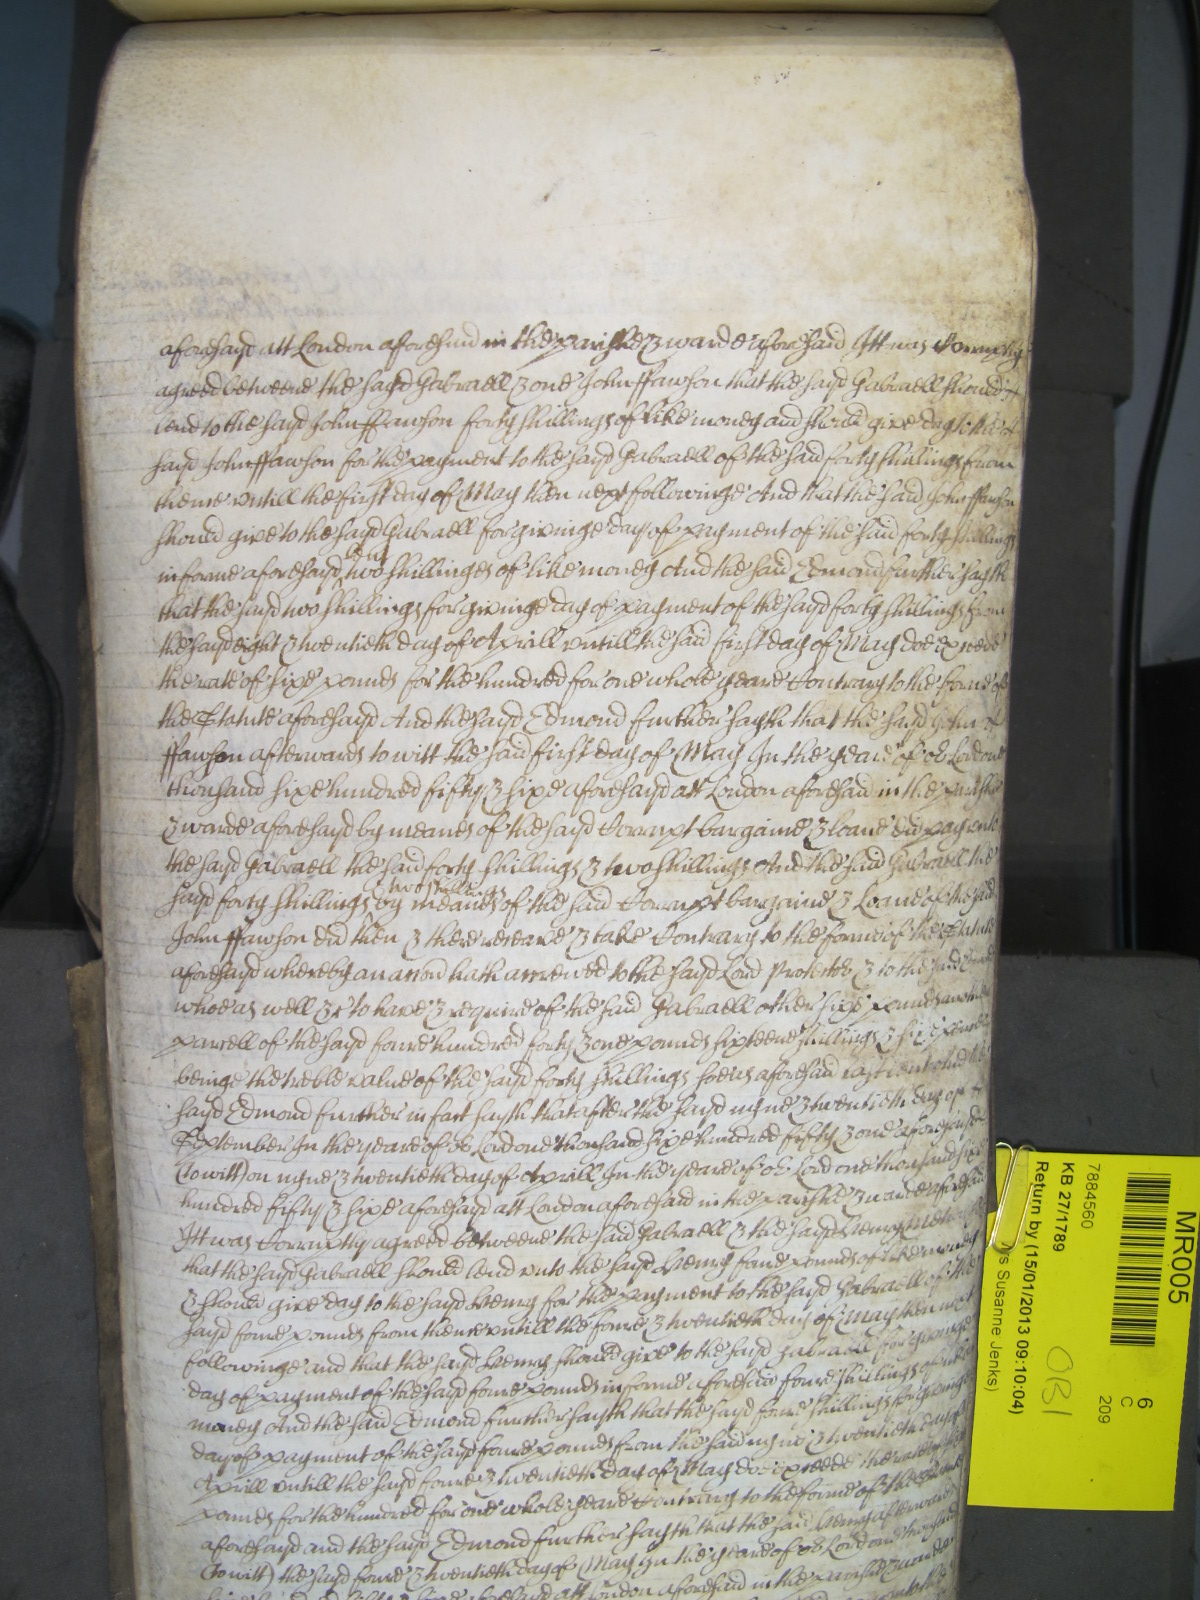 aforesayd att London aforesaid in the parishe & warde aforesaid Itt was Corruptly
agreed betweene the sayd Gabraell & one John ffawson that the sayd Gabraell should
lend to the sayd John ffawson forty shillings of like money and should give day to the
sayd John ffawson for the payment to the sayd Gabraell of the said forty shillings from
thence untill the first day of May then next followinge And that the said John ffawson
should give to the sayd Gabraell for givinge day of payment of the said forty shillings
in forme aforesayd two shillinges of like money And the said Edmond further sayth
that the sayd two shillings for givinge day of payment of the sayd forty shillings from
the sayd eight & twentieth day of Aprill untill the said first day of May doe exceede
the rate of sixe pounds for the hundred for one whole yeare Contrary to the forme of
the Statute aforesayd And the sayd Edmond further sayth that the sayd John
ffawson afterwards to witt the said first day of May In the yeare of or Lord one
thousand sixe hundred fifty & sixe aforesayd att London aforesaid in the parishe
& warde aforesayd by meanes of the sayd Corrupt bargaine & loane did pay unto
the sayd Gabraell the said forty shillings & two shillings And the said Gabraell the
sayd forty shillings & two shillings by meanes of the said Corrupt bargaine & Loane of the said
John ffawson did then & there receave & take Contrary to the forme of the Statute
aforesayd whereby an accion hath accrewed to the sayd Lord Protector & to the said Edmond
who as well &c to have & require of the said Gabraell other sixe pounds another
parcell of the sayd foure hundred forty & one pounds sixteene shillings & six pence
beinge the treble value of the sayd forty shillings soe as aforesaid And the
sayd Edmond further in fact sayth that after the sayd nyne & twentieth day of
September In the yeare of or Lord one thousand sixe hundred fifty & one aforesayd
(to witt) on nyne & twentieth day of Aprill In the yeare of or Lord one thousand sixe
hundred fifty & sixe aforesayd att London aforesaid in the parishe & warde aforesaid
Itt was Corruptly agreed betweene the said Gabraell & the sayd Henry
that the sayd Gabraell should lend unto the sayd Henry foure pounds of like money
& should give day to the sayd Henry for the payment to the sayd Gabraell of the
sayd foure pounds from thence untill the foure & twentieth day of May then next
followinge and that the sayd Henry should give to the sayd Gabraell for givinge
day of payment of the sayd foure pounds in forme aforesaid foure shillings of like
money And the said Edmond further sayth that the sayd foure shillings for givinge
day of payment of the sayd foure pounds from the said nyne & twentieth day of
Aprill untill the sayd foure & twentieth day of May doe exceede the rate of sixe
pounds for the hundred for one whole yeare Contrary to the forme of the Statute
aforesayd and the sayd Edmond further sayth that the said Henry afterwards
(to witt) the sayd foure & twentieth day of May In the yeare of or Lord one thousand
att London aforesaid in the parishe & warde
MR005
6
C
209
7884560
KB 27/1789
Return by (15/01/2013 09:10:04)
Susanne Jenks)
OB1